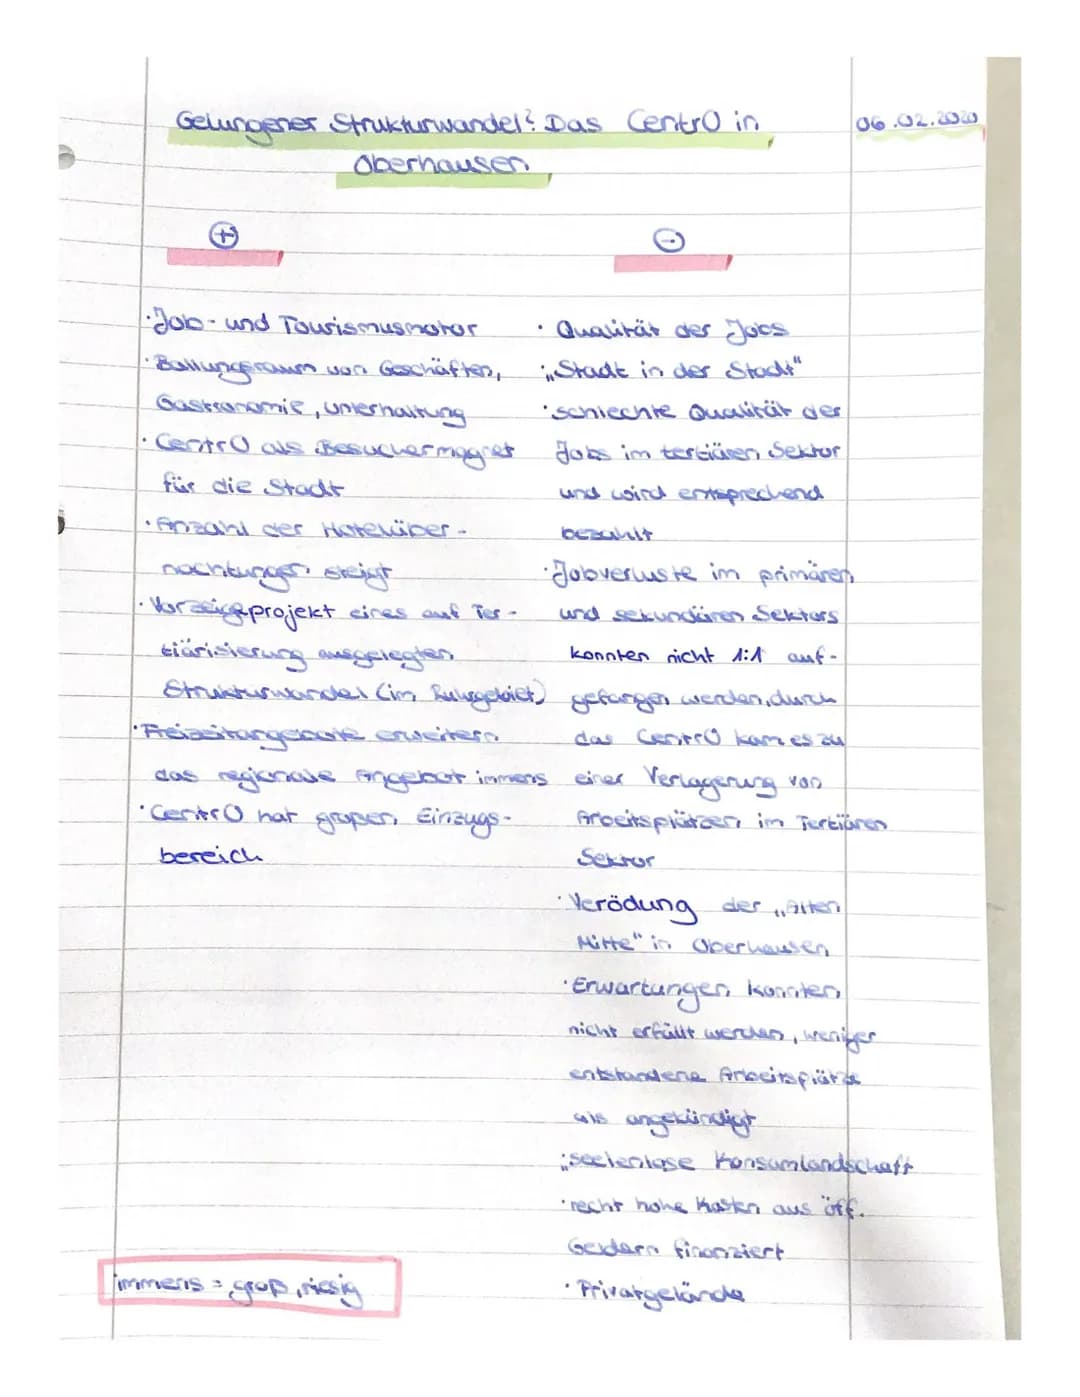 Gelungener Strukturwandel? Das CentrO in
Oberhausen
06.02.2020
+
-
·Job- und Tourismusmotor
·Ballungsraum von Geschäften,
Gastronomie, Unterhaltung
·CentrO als Besuchermagnet
für die Stadt
·Anzahl der Hotelüber-
nachtungen steigt
·Vorzeigeprojekt eines auf Ter-
tiärisierung ausgelegten
Strukturwandel (im Ruhrgebiet)
·Freizeitangebote erweitern
das regionale Angebot immens
·CentrO hat großen Einzugs-
bereich
immens = groß, riesig
·Qualität der Jobs
·„Stadt in der Stadt"
·schlechte Qualität der
Jobs im tertiären Sektor
und wird entsprechend
bezahlt
·Jobverluste im primären
und sekundären Sektors
konnten nicht 1:1 auf-
gefangen werden, durch
das CentrO kam es zu
einer Verlagerung von
Arbeitsplätzen im Tertiären
Sektor
·Verödung der „Alten
Mitte" in Oberhausen
·Erwartungen konnten
nicht erfüllt werden, weniger
entstandene Arbeitsplätze
als angekündigt
·„seelenlose Konsumlandschaft
·recht hohe Kosten aus öff.
Geldern finanziert
·Privatgelände